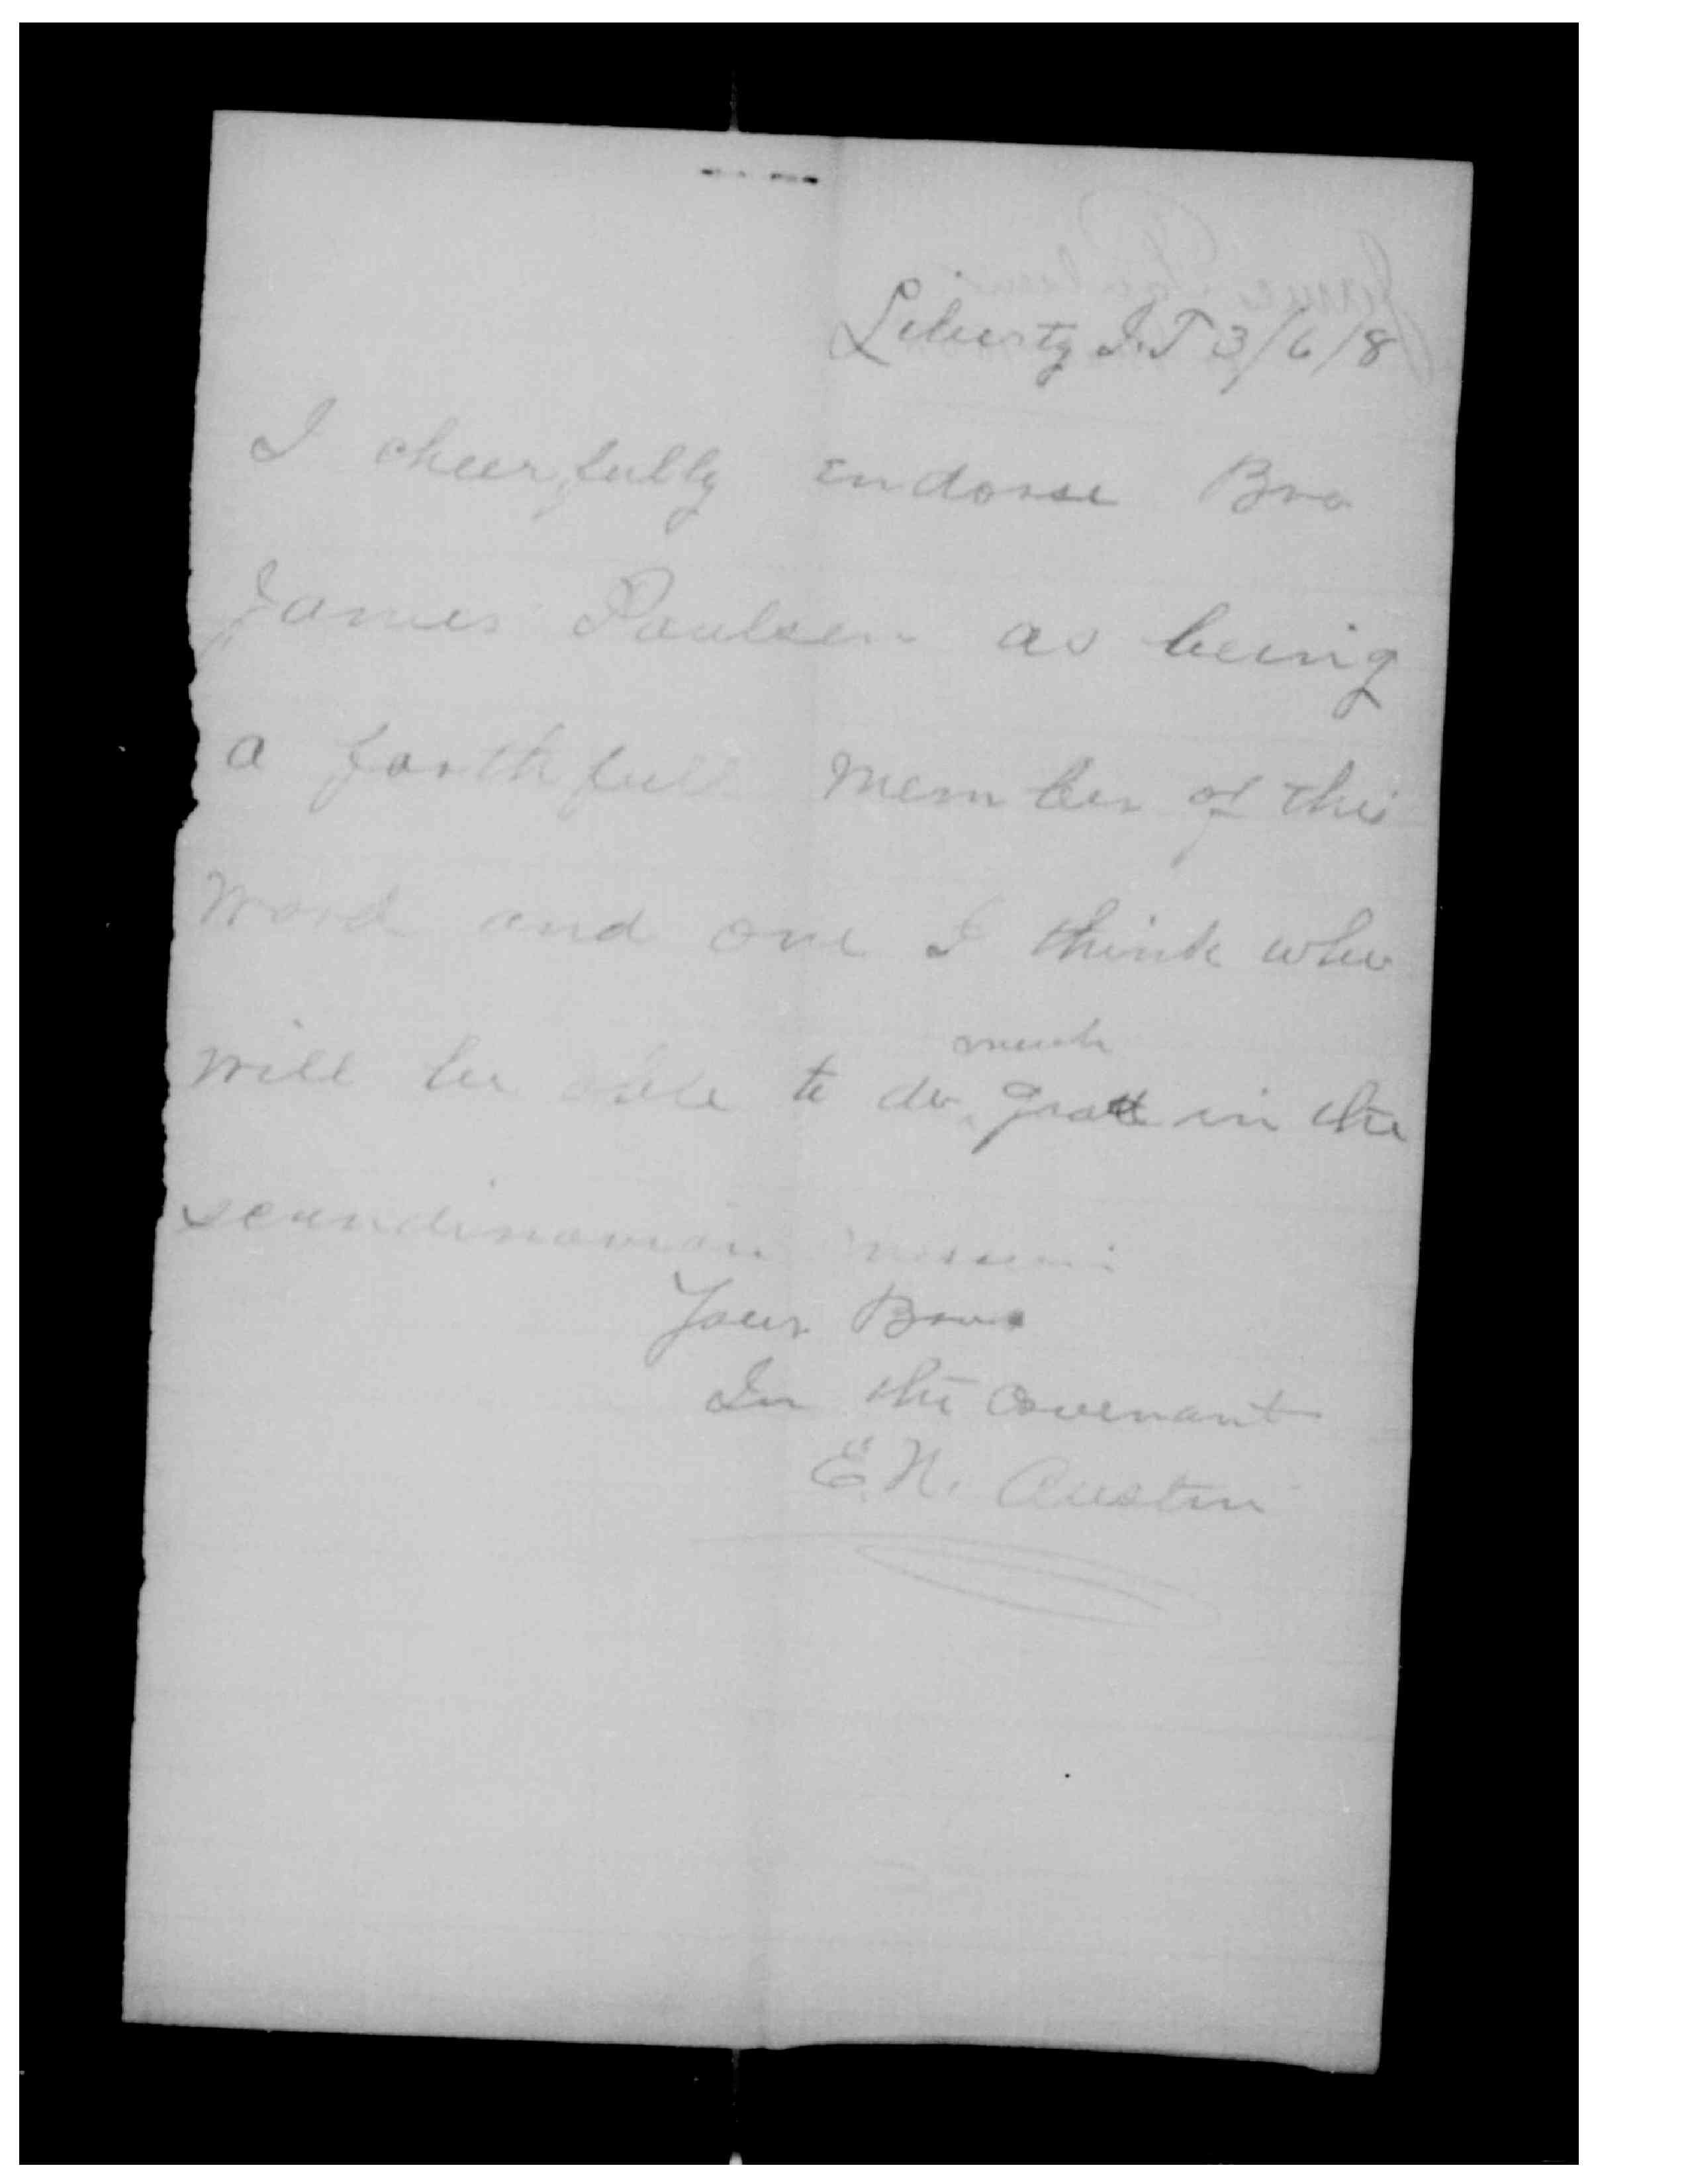 Liberty I.T 3/6/8
I cheerfully endorse Bro
James Paulsen as being
a faithfull member of this
Ward and one I think who
will be able to do much good in the
scandinavian mission
Your Bro
In the Covenant
E. N. Austin